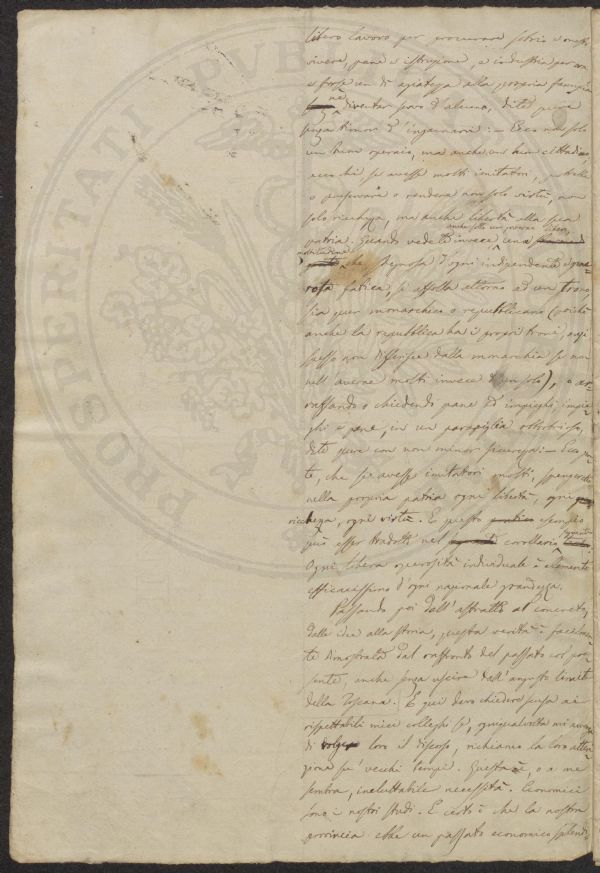 libero lavoro per procurare sobrio e onesto
vivere, pane e istruzione, e industria per
e forse un dì agiatezza alla propria famiglia
nè diventar servo d'alcuno, dite pure
senza timor d'ingannarvi: — Ecco non solo
un buon operaio, ma anche un buon cittadino,
ecco chi se avesse molti imitatori,
o preserverà o renderà non solo virtù, non
solo ricchezza, ma anche libertà alla sua
patria. Quando vedete invece anche solo un povero una
moltitudine che sdegnosa d'ogni indipendente
fatica, si affolla attorno ad un trono
sia pur monarchico o repubblicano (poichè
anche la repubblica ha i proprj troni, anzi
spesso non differisce dalla monarchia se non
nell'averne molti invece d'un solo), o ar-
raffando o chiedendo pane ed impieghi, impie-
ghi e pane, in un parapiglia obbrobrioso,
dite pure con non minor sicurezza: — Ecco
te, che se avesse imitatori molti, spegnerebbe
nella propria patria ogni libertà, ogni
ricchezza, ogni virtù. E questo esempio
può esser tradotto nel corollario
Ogni libera operosità individuale è elemento
efficacissimo d'ogni nazionale grandezza.
Passando poi dall'astratto al concreto,
dalle idee alla storia, questa verità è facilmen-
te dimostrata dal raffronto del passato col pre-
sente, anche senza uscire dall'angusto limite
della Toscana. E qui devo chiedere scusa ai
rispettabili miei colleghi se, ogniqualvolta mi
di volgere loro il discorso, richiamo la loro atten-
zione su' vecchi tempi. Questa è, o a me
sembra, ineluttabile necessità. Economici
sono i nostri studi. E certo è che la nostra
provincia ebbe un passato economico splendi-